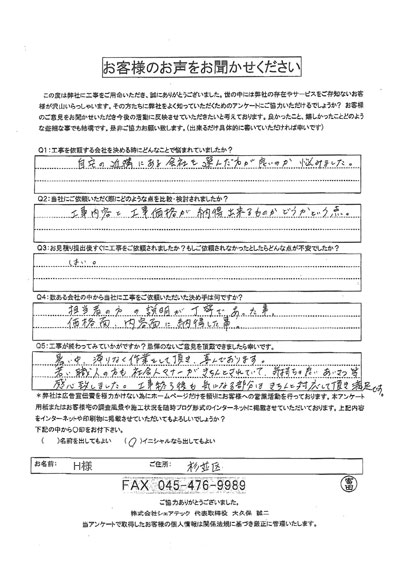 お客様のお声をお聞かせください
この度は弊社に工事をご用命いただき、誠にありがとうございました。世の中には弊社の存在やサービスをご存知ないお客
様が沢山いらっしゃいます。その方たちに弊社をよく知っていただくためのアンケートにご協力いただけるでしょうか？ お客様
のご意見をお聞かせいただき今後の活動に反映させていただきたいと考えております。良かったこと、嬉しかったことどのよう
な些細な事でも結構です。是非ご協力お願い致します。(出来るだけ具体的に書いていただければ幸いです)
Q1：工事を依頼する会社を決める時にどんなことで悩まれていましたか？
自宅の近隣にある会社を選んだ方が良いのか悩みました。
Q2：当社にご依頼いただく際にどのような点を比較・検討されましたか？
工事内容と工事価格が納得出来るものかどうかという点。
Q3：お見積り提出後すぐに工事をご依頼されましたか？もしご依頼されなかったとしたらどんな点が不安でしたか？
はい。
Q4：数ある会社の中から当社に工事をご依頼いただいた決め手は何ですか？
担当者の方の説明が丁寧であった事。
価格面、内容面に納得した事。
Q5：工事が終わってみていかがですか？忌憚のないご意見を頂戴できましたら幸いです。
暑い中、滞りなく作業をして頂き、
若い職人の方も社会人マナーがきちんとされていて、気持ちの良いあいさつ等
感心致しました。工事終了後も気になる部分はきちんと対応して頂き満足です。
＊弊社は広告宣伝費を極力かけない為にホームページだけを頼りにお客様への営業活動を行っております。本アンケート
用紙またはお客様宅の調査風景や施工状況を随時ブログ形式のインターネットに掲載させていただいております。上記内容
をインターネットや印刷物に掲載させていただいてもよろしいでしょうか？
下記の中から○印をお付下さい。
( )名前を出してもよい (○)イニシャルなら出してもよい
お名前： H様 ご住所： 杉並区
FAX 045-476-9989
ご協力ありがとうございました。
株式会社シェアテック 代表取締役 大久保 誠二
当アンケートで取得したお客様の個人情報は関係法規に基づき厳正に管理いたします。